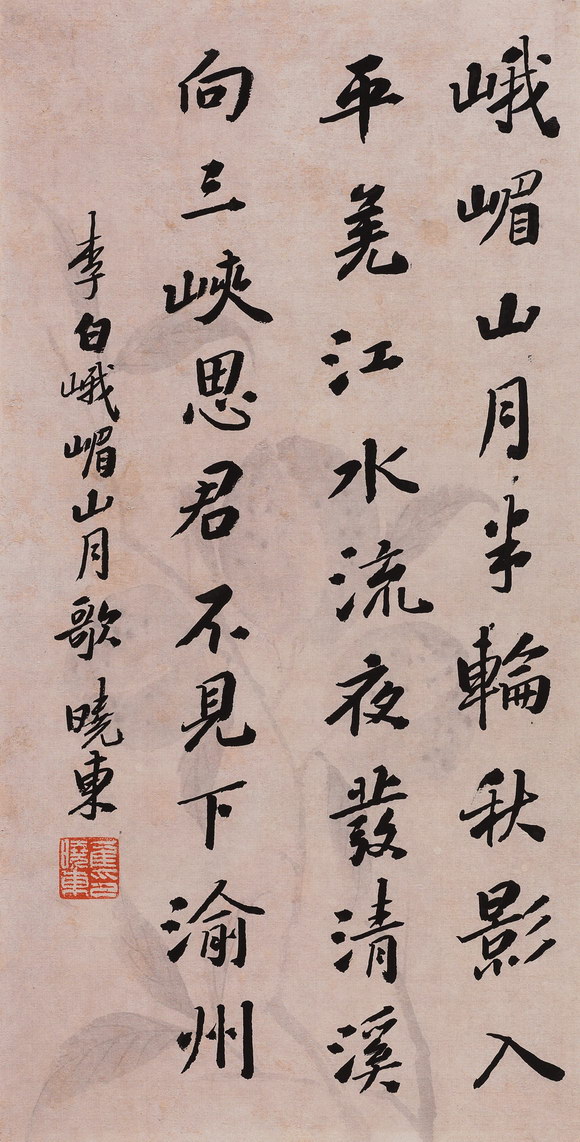 峨嵋山月半輪秋影入
平羌江水流夜發清溪
向三峽思君不見下渝州
李白峨嵋山月歌 曉東
崔印
曉東